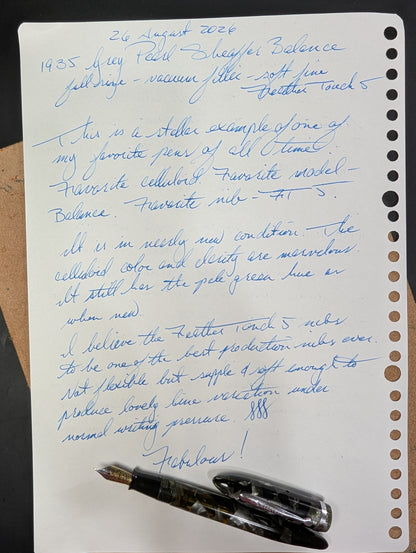 26 August 2026
1935 Grey Pearl Sheaffer Balance
full size - vacuum filler - soft fine
Feather Touch 5
This is a stellar example of one of
my favorite pens of all time.
Favorite celluloid. Favorite model -
Balance. Favorite nib - FT 5.
It is in nearly new condition. The
celluloid color and clarity are marvelous.
It still has the pale green hue as
when new.
I believe the Feather Touch 5 nibs
to be one of the best production nibs ever.
Not flexible but supple & soft enough to
produce lovely line variation under
normal writing pressure. §§§
Fabulous!